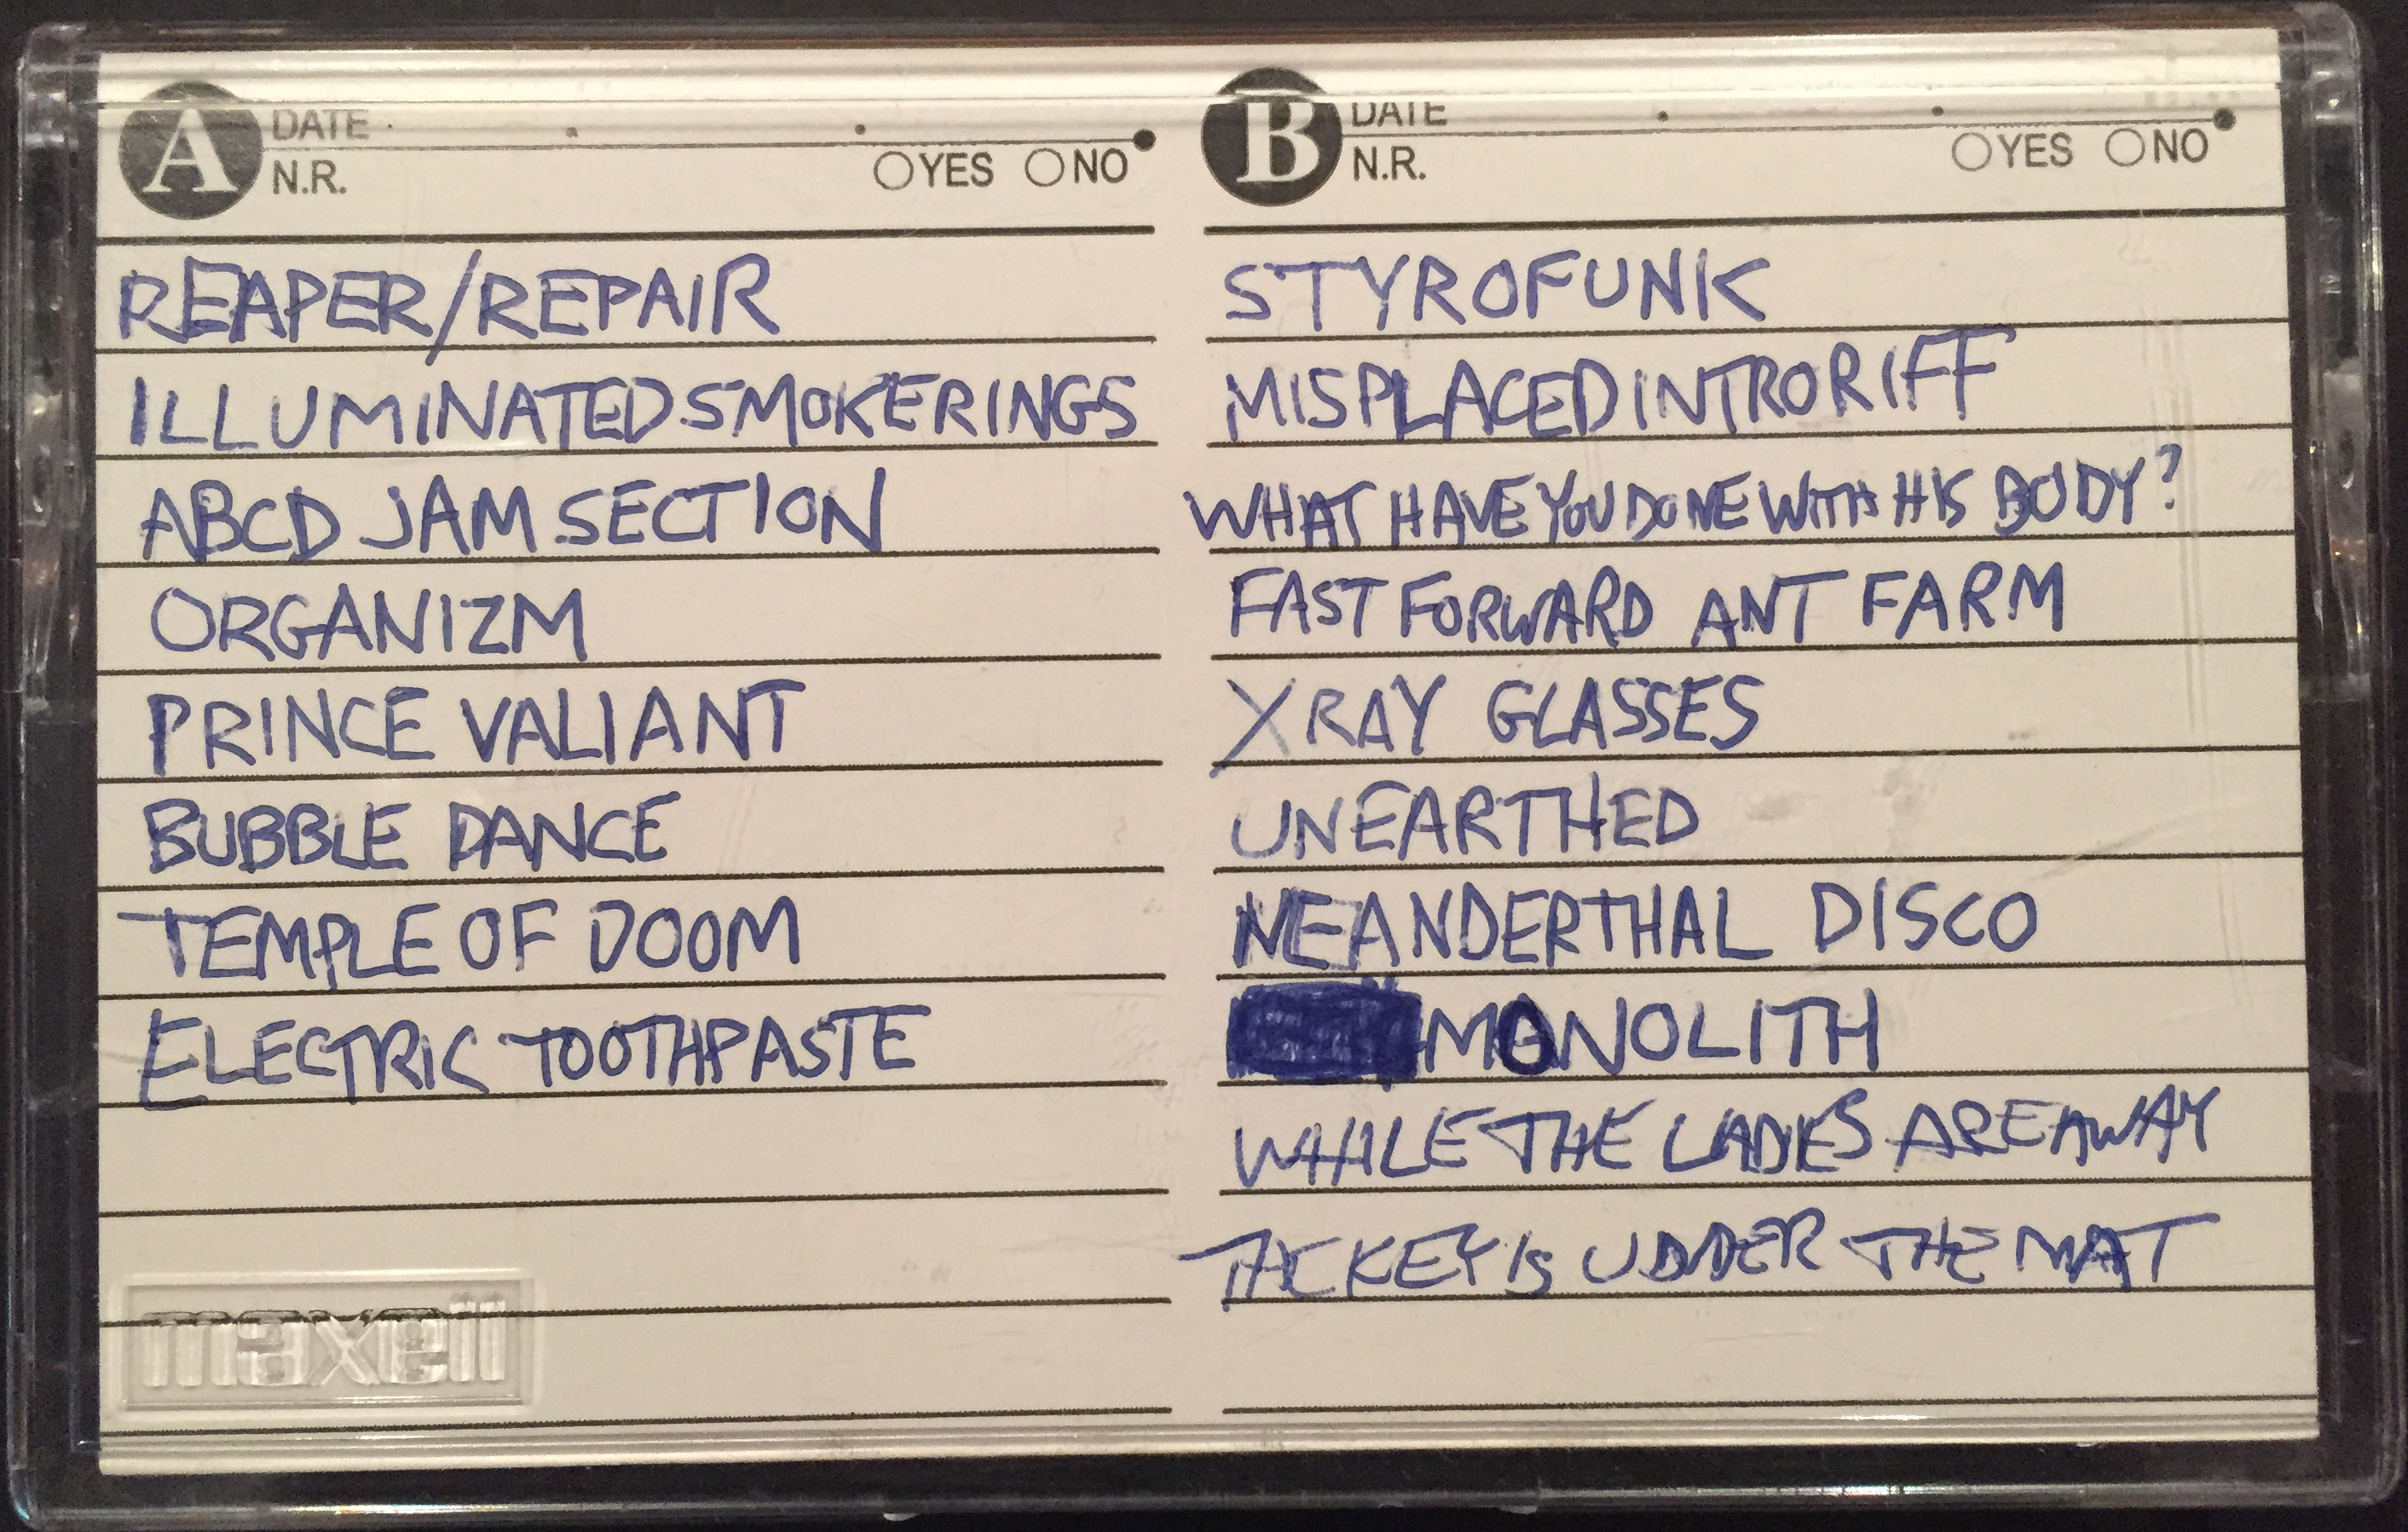 A DATE
N.R. YES NO
REAPER/REPAIR
ILLUMINATED SMOKE RINGS
ABCD JAM SECTION
ORGANIZM
PRINCE VALIANT
BUBBLE DANCE
TEMPLE OF DOOM
ELECTRIC TOOTHPASTE
maxell
B DATE
N.R. YES NO
STYROFUNK
MISPLACED INTRO RIFF
WHAT HAVE YOU DONE WITH HIS BODY?
FAST FORWARD ANT FARM
XRAY GLASSES
UNEARTHED
NEANDERTHAL DISCO
MONOLITH
WHILE THE LADIES ARE AWAY
KEY IS UDDER THE MAT